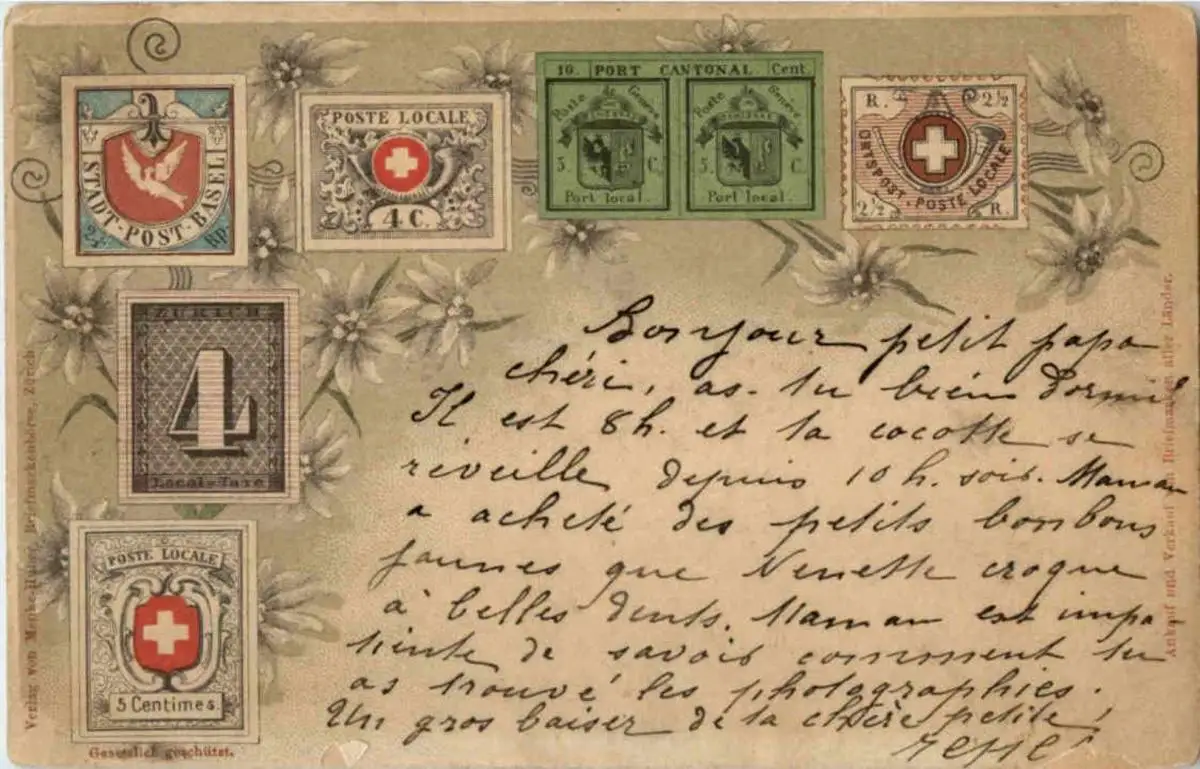 STADT-POST-BASEL
2½ RP.
POSTE LOCALE
4 C.
10. PORT CANTONAL Cent
Poste de Genève Poste de Genève
5 C. 5 C.
Port local. Port local.
R. 2½
ORTSPOST. POSTE LOCALE
2½ R.
ZÜRICH
4
Local-Taxe
POSTE LOCALE
5 Centimes
Gesetzlich geschützt.
Verlag von Briefmarkenbörse, Zürich
Ankauf und Verkauf von Briefmarken aller Länder.
Bonjour petit papa
chéri, as-tu bien dormi
Il est 8h. et la cocotte se
réveille depuis 10 h. soir. Maman
a acheté des petits bonbons
jaunes que Nenette croque
à belles dents. Maman est impa
tiente de savoir comment tu
as trouvé les photographies.
Un gros baiser de la chère petite!